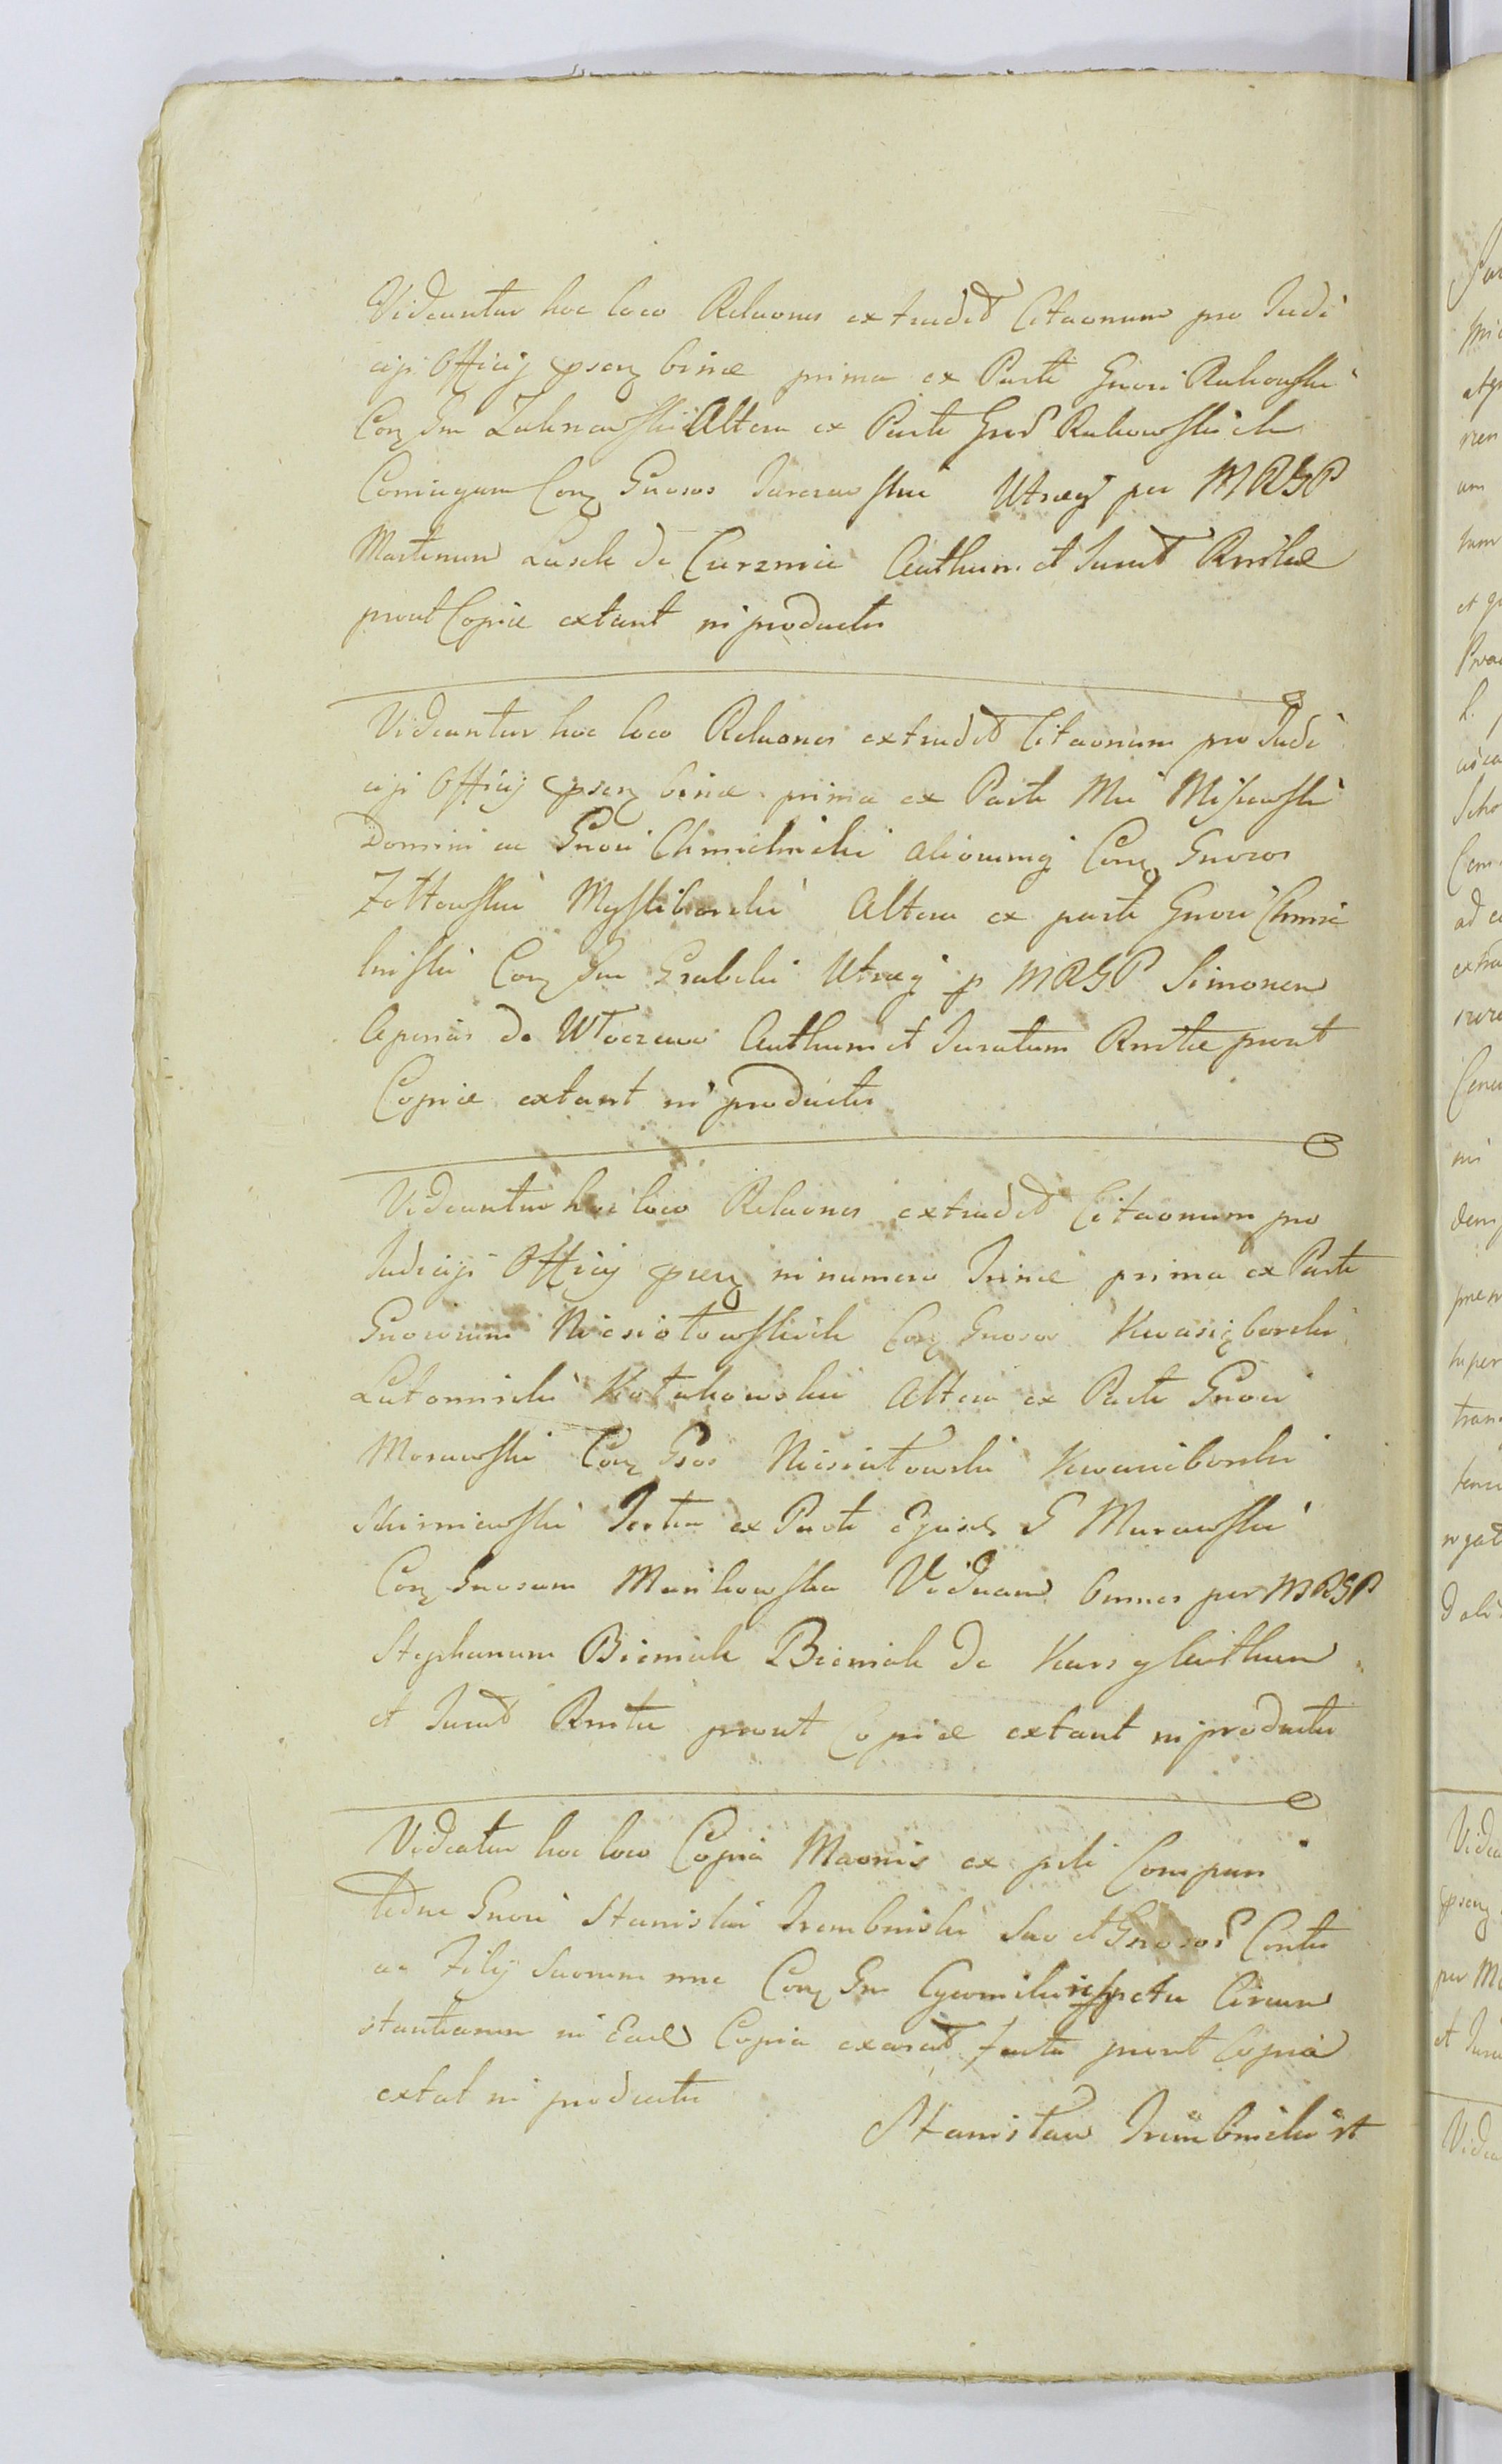 Videantur hoc loco Relaones extradit Citaonum pro Judi
ciji Officij psenz binæ prima ex Parte Gnosi Rakowski
Conz Gm Zaknowski Altera ex Parte Gnos Rakowskich
Coniugum Conz Gnosos Jarczewskie Utræq per MRGP
Martinum Lasek de Curznie Authum et Jurat Rnitæ
prout Copiæ extant in productis
Videantur hoc loco Relaones extradit Citaonum pro Judi
ciji Officij psenz binæ prima ex Parte Mci Misiewski
Domini ac Gnosi Chmielnicki aliorumq Conz Gnosos
Zottowskie Mysliborski Altera ex parte Gnosi Chmie
lniski Conz Gm Grabski Utræq p MRGP Simonem
de Wtoczewo Authum et Juratum Rnitæ prout
Copiæ extant in productis
Videantur hoc loco Relaones extradit Citaonum pro
Judiciji Officij psenz in numero Trinæ prima ex Parte
Gnosorum Niesiotowskich Conz Gnosos Kwasięborski
Lutomirski Kotakowski Altera ex Parte Gnosi
Morawski Conz Gsos Niesiotowski Kwasiborski
Skirniewski Tertia ex Parte Ejusd G Murawski
Conz Gnosam Mankowska Viduam Omnes per MRGP
Stephanum Bieniak Bieniak de Karsy Authum
et Jurat Rnitæ prout Copiæ extant in productis
Videatur hoc loco Copia Maonis ex psli Compari
tione Gnosi Stanislai Trembinski suo et Gnosos Contis
ac Filij suorum nne Conz Gn respectu Circum
stantiarum in Ead Copia exarat facta prout Copia
extat in productis
Stanisław Trembinski st